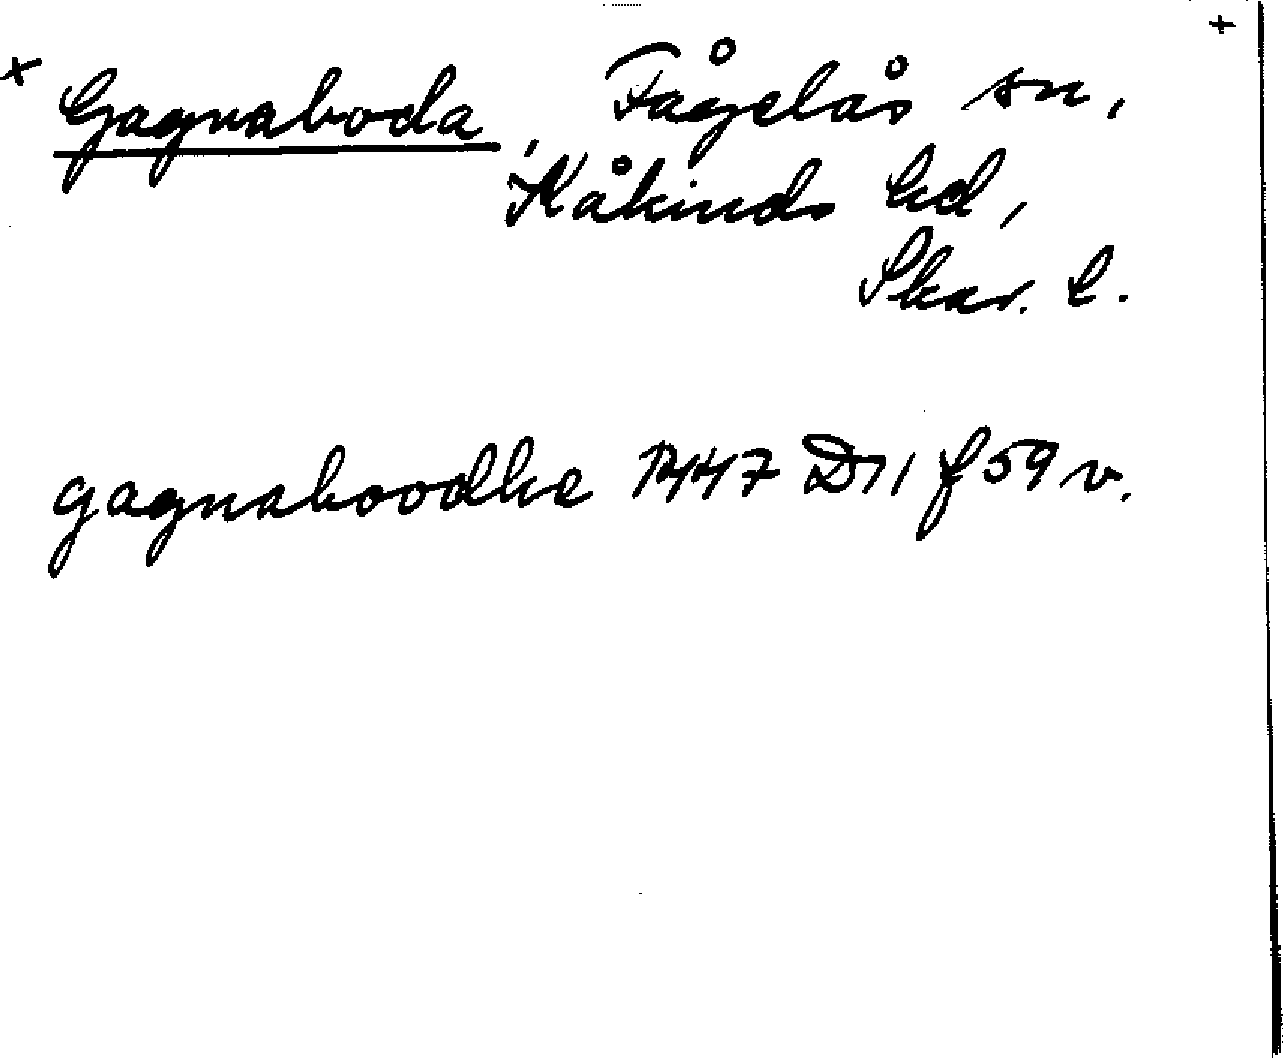 +
× Gagnaboda, Fågelås sn,
Kåkinds hd,
Skar. l.
gagnaboodhe 1447 D11 f 59 v.